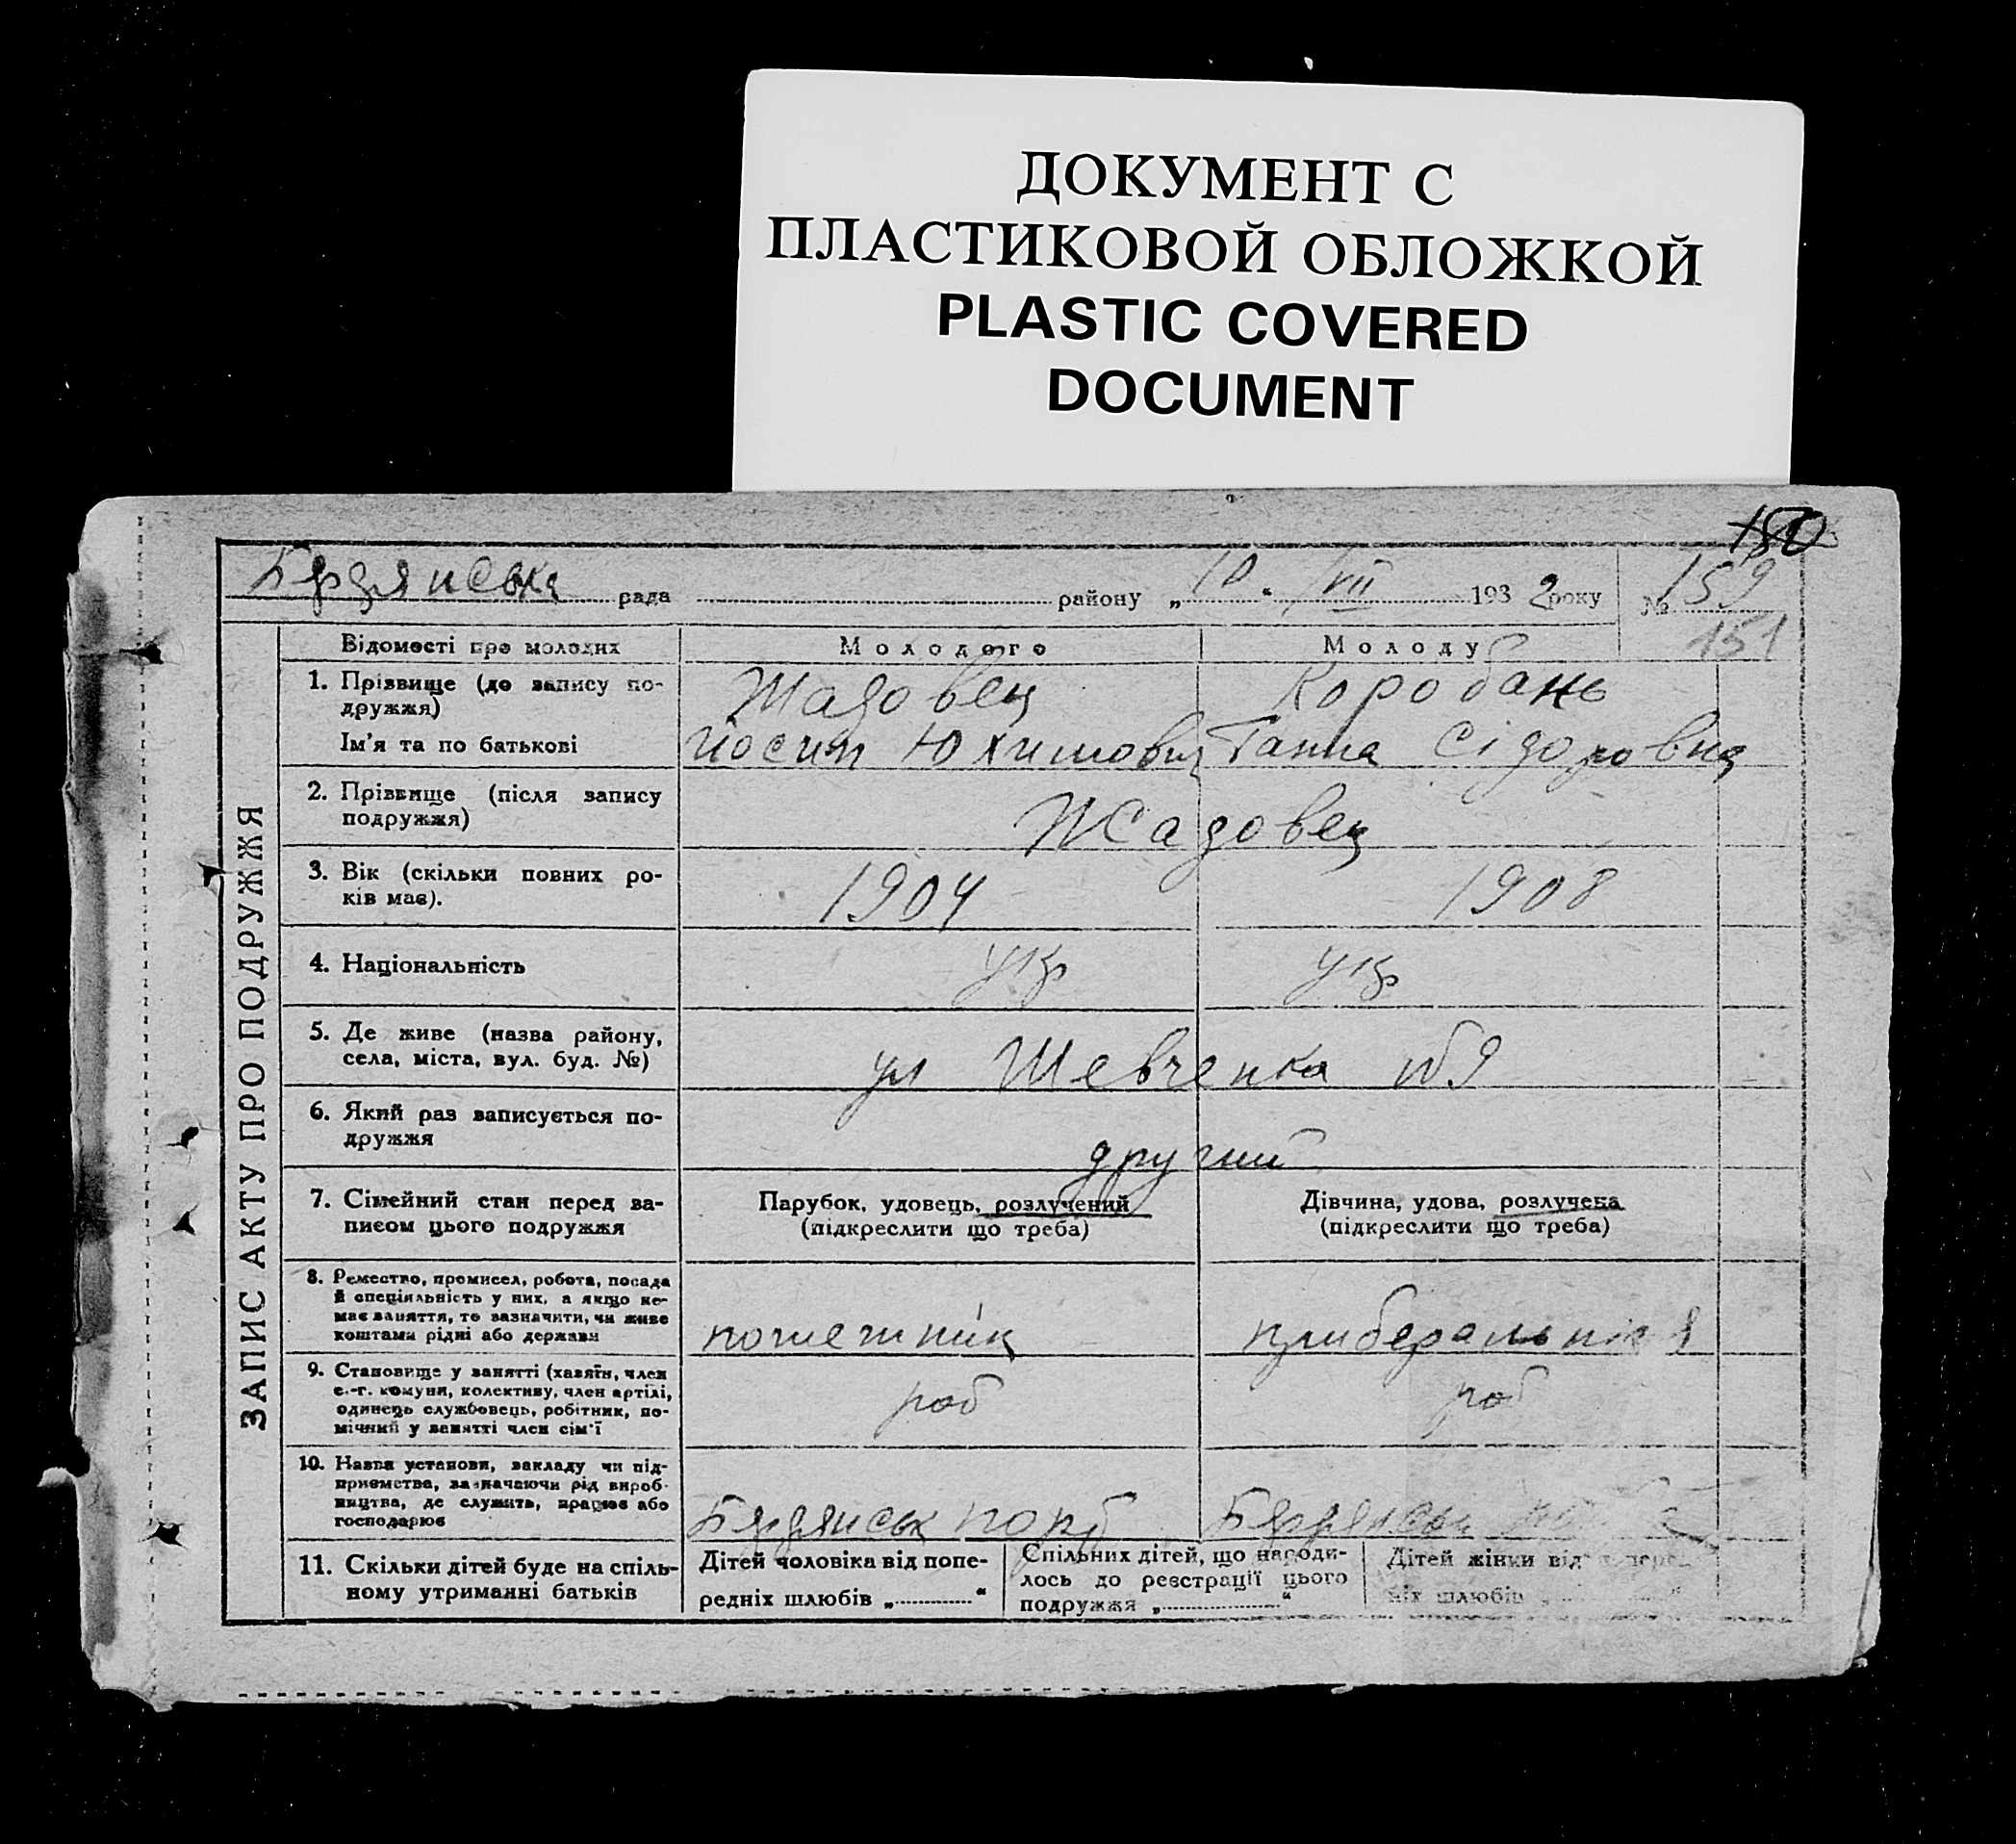 ДОКУМЕНТ С
ПЛАСТИКОВОЙ ОБЛОЖКОЙ
PLASTIC COVERED
DOCUMENT
150
Бердянська рада району „10“ VII 1932 року № 159
151
ЗАПИС АКТУ ПРО ПОДРУЖЖЯ
Відомості про молодих Молодого Молоду
1. Прізвище (до запису по-
дружжя) Жадовец Коробань
Ім'я та по батькові Йосип Юхимович Ганна Сідоровна
2. Прізвище (після запису
подружжя) Жадовец
3. Вік (скільки повних ро-
ків має). 1904 1908
4. Національність укр укр
5. Де живе (назва району,
села, міста, вул. буд. №) ул Шевченка №9
6. Який раз записується по-
дружжя другий
7. Сімейний стан перед за-
писом цього подружжя
Парубок, удовець, розлучений
(підкреслити що треба)
Дівчина, удова, розлучена
(підкреслити що треба)
8. Ремество, промисел, робота, посада
й спеціяльність у них, а якщо не-
має заняття, то зазначити, чи живе
коштами рідні або держави
9. Становище у занятті (хазяїн, член
с.-г. комуни, колективу, член артілі,
одинець службовець, робітник, по-
мічний у занятті член сім'ї
роб роб
10. Назва установи, закладу чи під-
приємства, зазначаючи рід вироб-
ництва, де служить, працює або
господарює
Бердянськ порт Бердянськ
11. Скільки дітей буде на спіль-
ному утриманні батьків
Дітей чоловіка від попе-
редніх шлюбів „ “
Спільних дітей, що народи-
лось до реєстрації цього
подружжя „ “
Дітей жінки від поперед
ніх шлюбів „ “